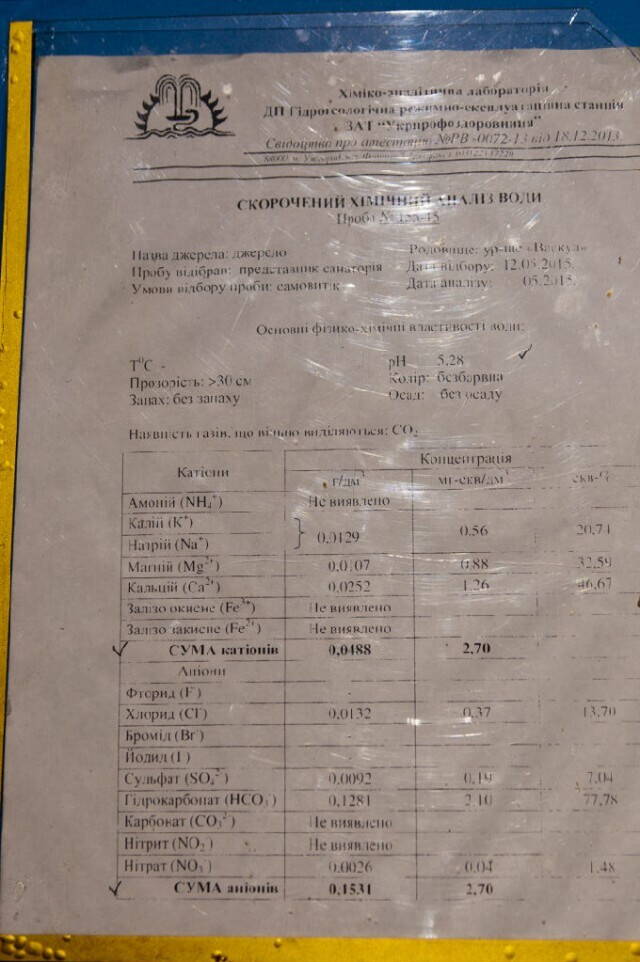 Хіміко-аналітична лабораторія
ДП Гідрогеологічна режимно-експлуатаційна станція
ЗАТ "Укрпрофоздоровниця"
Свідоцтво про атестацію №РВ -0072-13 від 18.12.2013
СКОРОЧЕНИЙ ХІМІЧНИЙ АНАЛІЗ ВОДИ
Проба №
Назва джерела: джерело Родовище: ур-ще
Пробу відібрав: представник санаторія Дата відбору: 12.05.2015.
Умови відбору проби: самовитік Дата аналізу: 05.2015.
Основні фізико-хімічні властивості води:
T⁰C - pH 5,28
Прозорість: >30 см Колір: безбарвна
Запах: без запаху Осад: без осаду
Наявність газів, що вільно виділяються: CO₂
Катіони Концентрація
г/дм³ мг-екв/дм³ екв-%
Амоній (NH₄⁺) Не виявлено
Калій (K⁺)
Натрій (Na⁺) } 0,0129 0.56 20,74
Магній (Mg²⁺) 0,0107 0.88 32,59
Кальцій (Ca²⁺) 0,0252 1.26 46,67
Залізо окисне (Fe³⁺) Не виявлено
Залізо закисне (Fe²⁺) Не виявлено
СУМА катіонів 0,0488 2,70
Аніони
Фторид (F⁻) -
Хлорид (Cl⁻) 0,0132 0,37 13,70
Бромід (Br⁻) -
Йодид (I⁻) -
Сульфат (SO₄²⁻) 0,0092 0,19 7,04
Гідрокарбонат (HCO₃⁻) 0,1281 2,10 77,78
Карбонат (CO₃²⁻) Не виявлено
Нітрит (NO₂⁻) Не виявлено
Нітрат (NO₃⁻) 0,0026 0,04 1,48
СУМА аніонів 0,1531 2,70